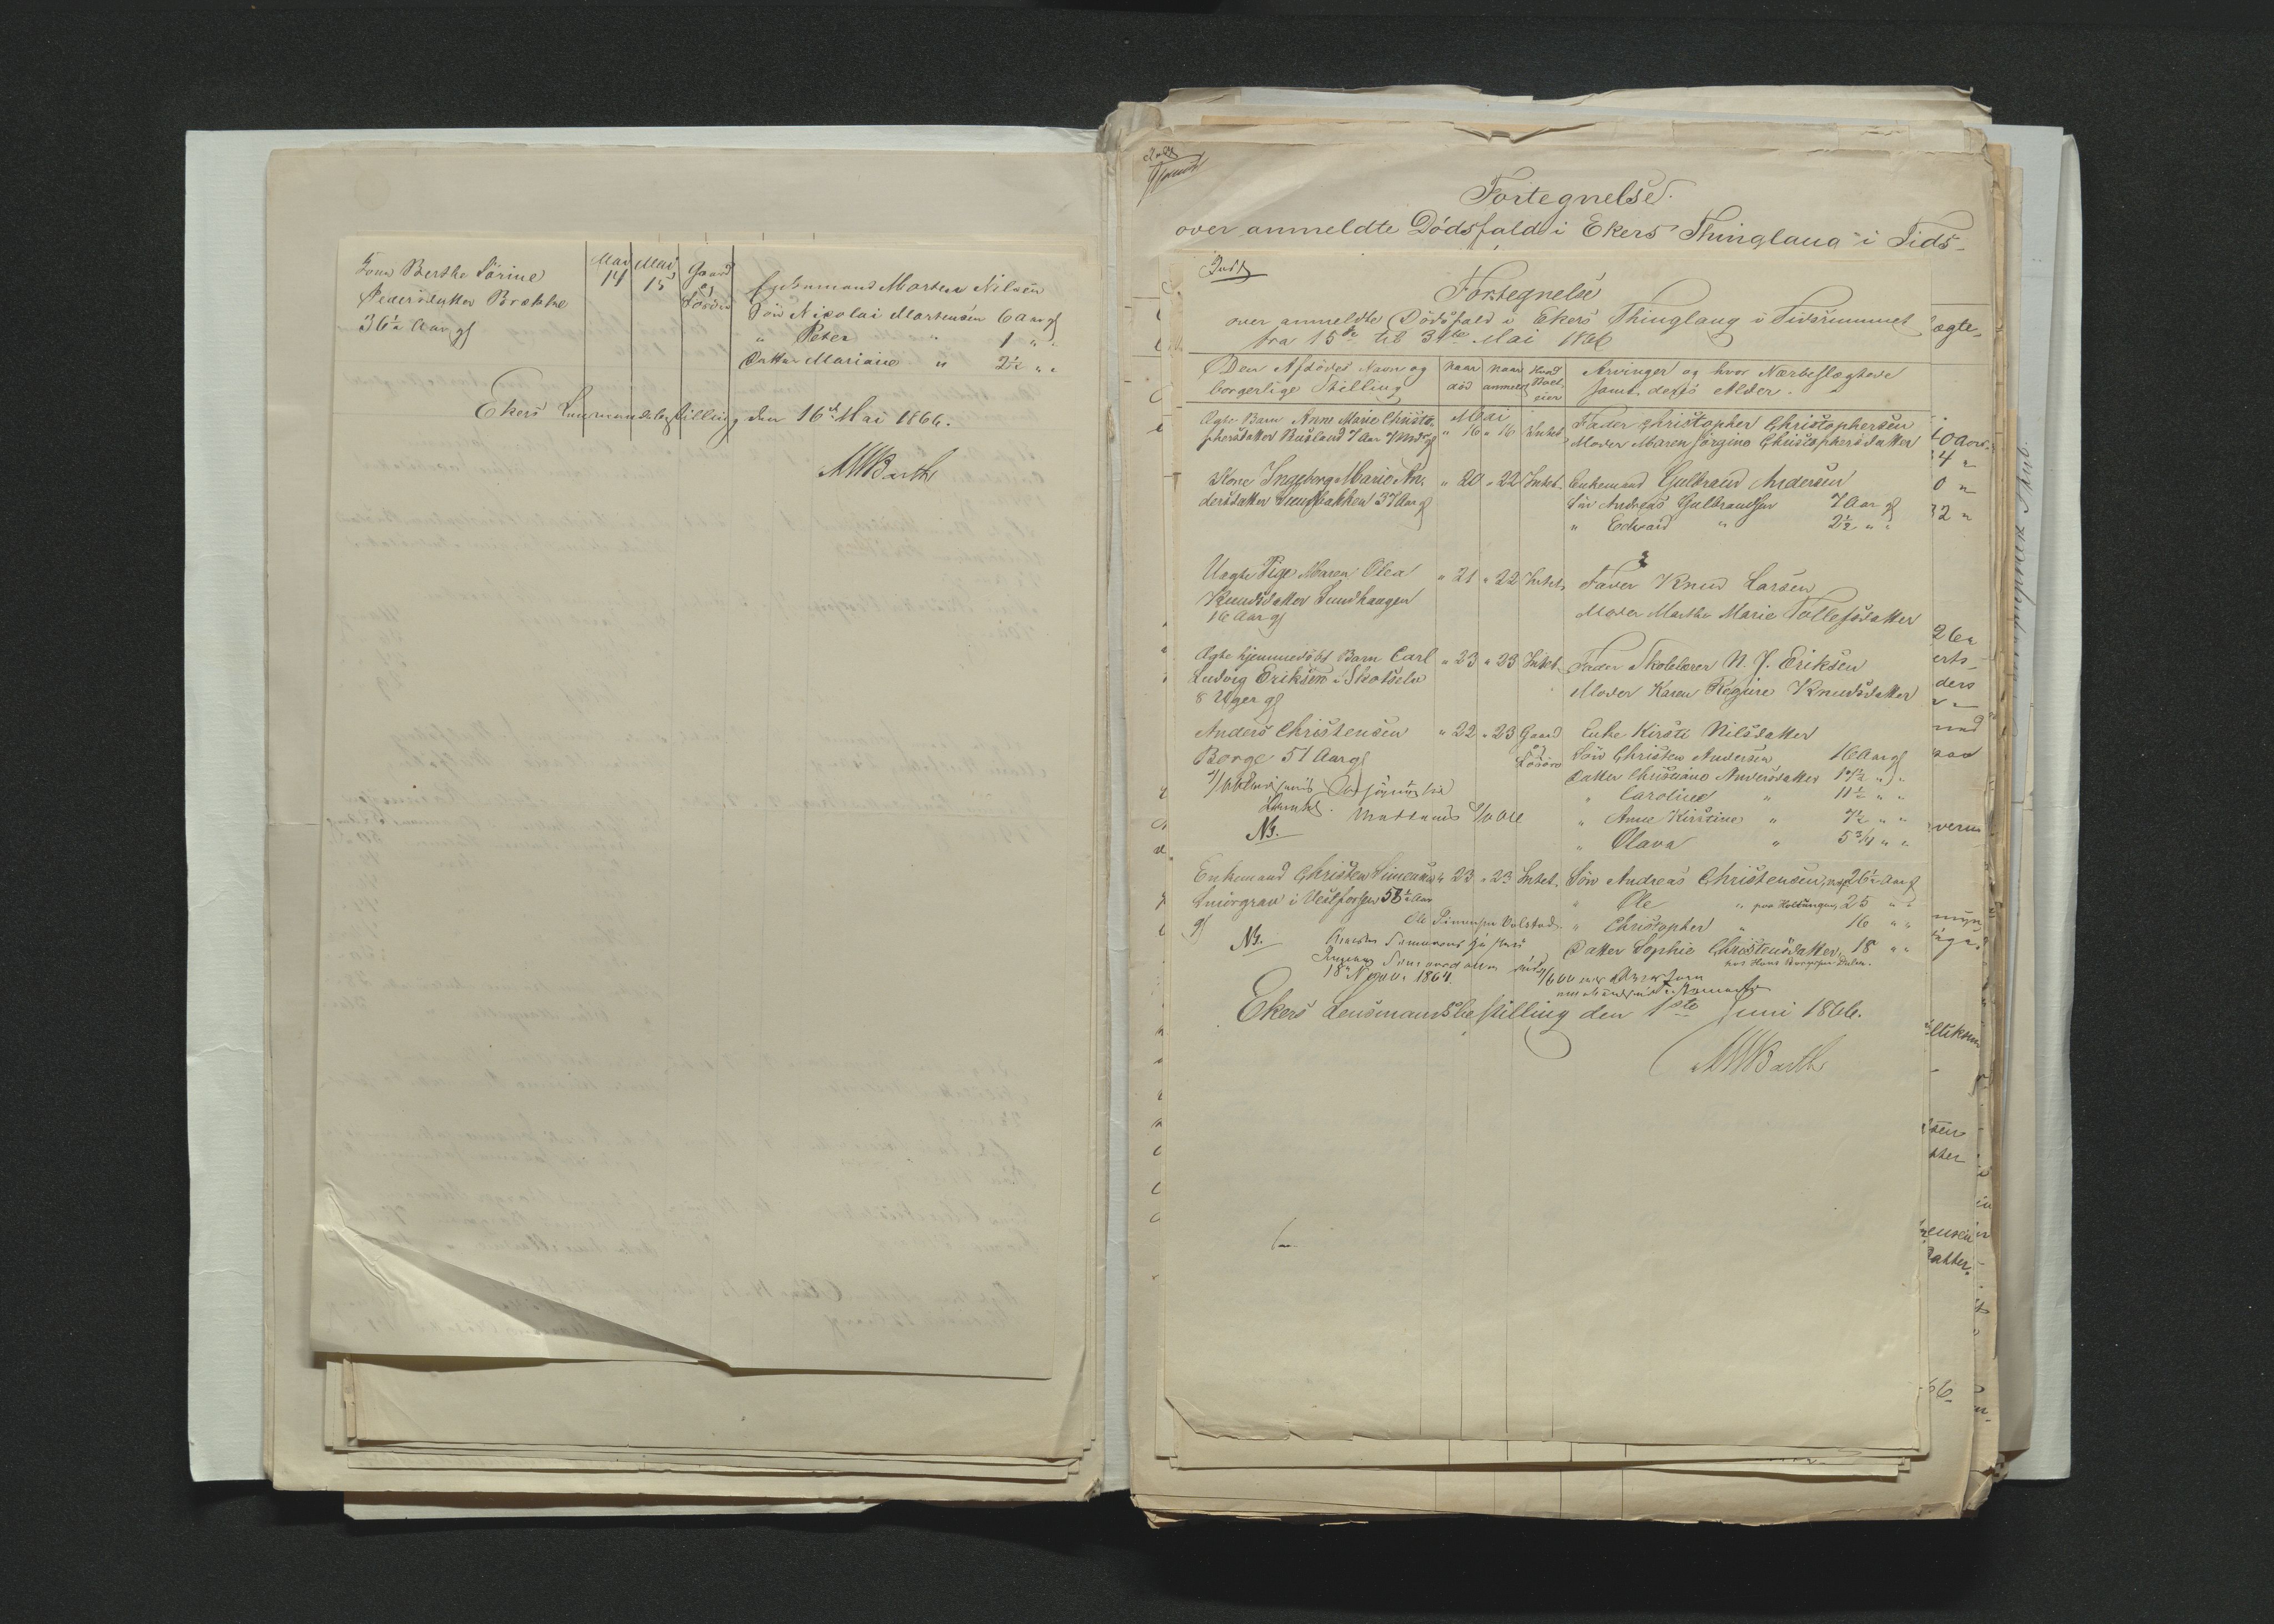 Kone Berthe Sørine
Pedersdatter Brække
36½ Aar gl
Mai Mai
14 15
Gaard
og
Løsøre
Enkemand Morten Nilsen
Søn Nikolai Mortensen 6 Aar gl
" Peter " 1 " "
Datter Mariane " 2½ " "
Ekers Lensmandsbestilling den 16de Mai 1866.
MWBarth
Fortegnelse
over anmeldte Dødsfald i Ekers Thinglaug i Tids-
Fortegnelse
over anmeldte Dødsfald i Ekers Thinglaug i Tidsrummet
fra 15de til 31te Mai 1866
Den Afdødes Navn og
borgerlige Stilling
naar
død
naar
anmeldt
Hvad
Boet
eier
Arvinger og hvor Nærbeslægtede
samt deres Alder.
Mai
Ægte Barn Anne Marie Christo-
phersdatter Rusland 7 Aar
" 16 " 16 Intet
Fader Christopher Christophersen
Moder Maren Jørgine Christophersdatter
Kone Ingeborg Marie An-
dersdatter 37 Aar gl
" 20 " 22 Intet.
Enkemand Gulbrand Andersen
Søn Andreas Gulbrandsen 7 Aar gl
" Edvard " 2½ " "
Ungte Pige Maren Olea
Knudsdatter Sundhaugen
16 Aar gl
" 21 " 22 Intet
Fader Knud Larsen
Moder Marthe Marie Tollefsdatter
Ægte hjemmedøbt Barn Carl
Ludvig Eriksen i Skotselv
8 Uger gl
" 23 " 23 Intet
Fader Skolelærer N. J. Eriksen
Moder Karen Regine Knudsdatter
Anders Christensen
Borge 51 Aar gl
" 22 " 23 Gaard
og
Løsøre
Enke Kirsti Nilsdatter
Søn Christen Andersen 16 Aar gl
Datter Christiane Andersdatter
" Caroline " 11½ " "
" Anne Kirstine " 7½ " "
" Olava " 5¾ " "
NB.
Enkemand Christen Simensen
i Vestfossen 58½ Aar
gl
" 23 " 23 Intet.
Søn Andreas Christensen, 26½ Aar gl
" Ole " paa 25 " "
" Christopher " 16 " "
Datter Sophie Christensdatter, 18 " "
NB.
1864
Ekers Lensmandsbestilling den 1ste Juni 1866.
MWBarth